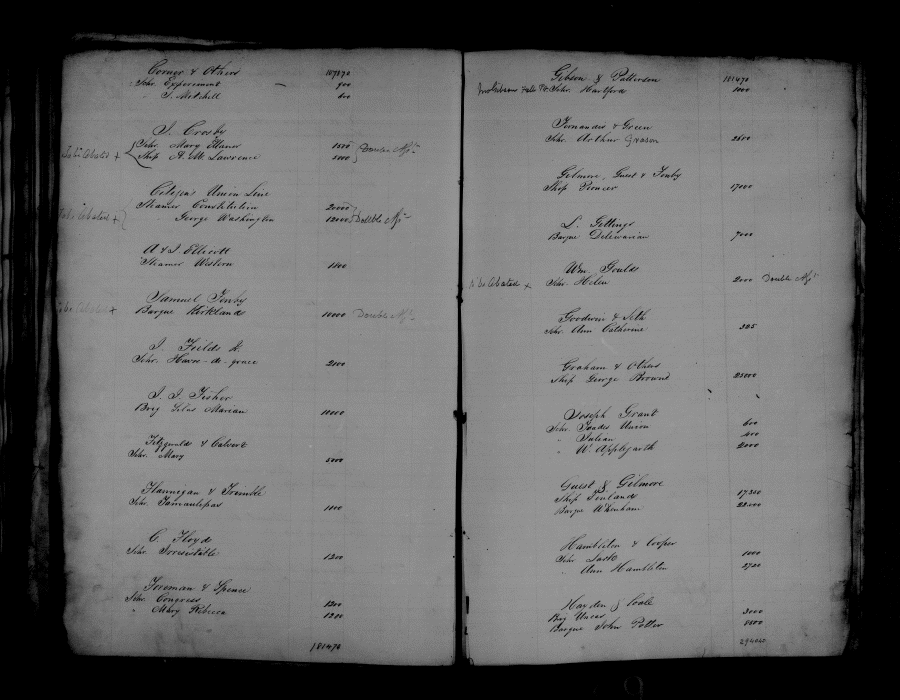 Corner & Others 107870
Schr. Experiment — 900
" T. Mitchell 600
J. Crosby
Schr. Mary Eleanor 1500
To be Rebated + Ship A. M. Lawrence 5000 Double
Citizens Union Line
Steamer Constitution 2000
To be Rebated + George Washington 12000 Double
A & J. Ellicott
Steamer Western 1800
Samuel Fenby
To be Rebated + Barque Kirkland 10000 Double
J. Fields
Schr. Havre-de-grace 2000
J. J. Fisher
Brig Marian 10000
Fitzgerald & Calvert
Schr. Mary 5000
Flannegan & Trimble
Schr. Tamaulipas 1000
C. Floyd
Schr. Irresistible 1200
Foreman & Spence
Schr. Congress 1200
" Mary Rebecca 1200
181470
Gibson & Patterson 181470
Schr. Hartford 1000
Fernandis & Green
Schr. Arthur 2600
Gilmore, Guest & Fenby
Ship Pioneer 17000
L. Gittings
Barque Delawarian 7000
Wm. Goulds
To be Rebated + Schr. Helen 2000 Double
Goodwin & Seth
Schr. Ann Catherine 325
Graham & Others
Ship George Brown 25000
Joseph Grant
Schr. Trades Union 600
" Julian 400
" W. Applegarth 2000
Guest & Gilmore
Ship 17,500
Barque 22000
Hambleton & Cooper
Schr 1000
" Ann Hambleton 2700
Hayden & Coale
Brig Uncas 3000
Barque John Potter 8500